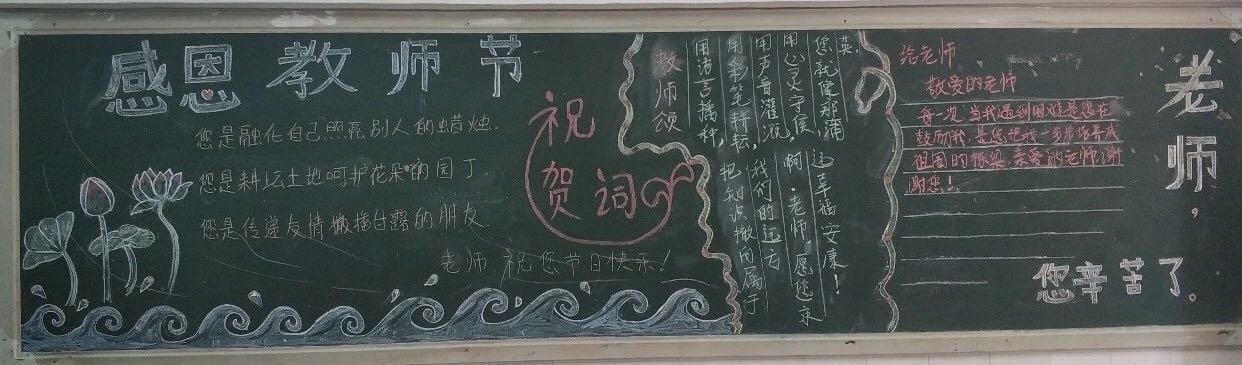 感恩教师节
您是融化自己照亮别人的蜡烛.
您是耕坛土地呵护花朵的园丁
您是传递友情撒播甘露的朋友.
老师,祝您节日快乐!
祝贺词
教师颂
用语言播种,
用彩笔耕耘,
用声音灌溉,
用心灵守候,
您就像那蒲
英.
把知识撒向属于
我们的远方
啊,老师,愿您永
这幸福安康!
给老师
敬爱的老师
每一次当我遇到困难是您在
鼓励我,是您把我一步步培养成
祖国的栋梁.亲爱的老师,谢
谢您!
老师,
您辛苦了。